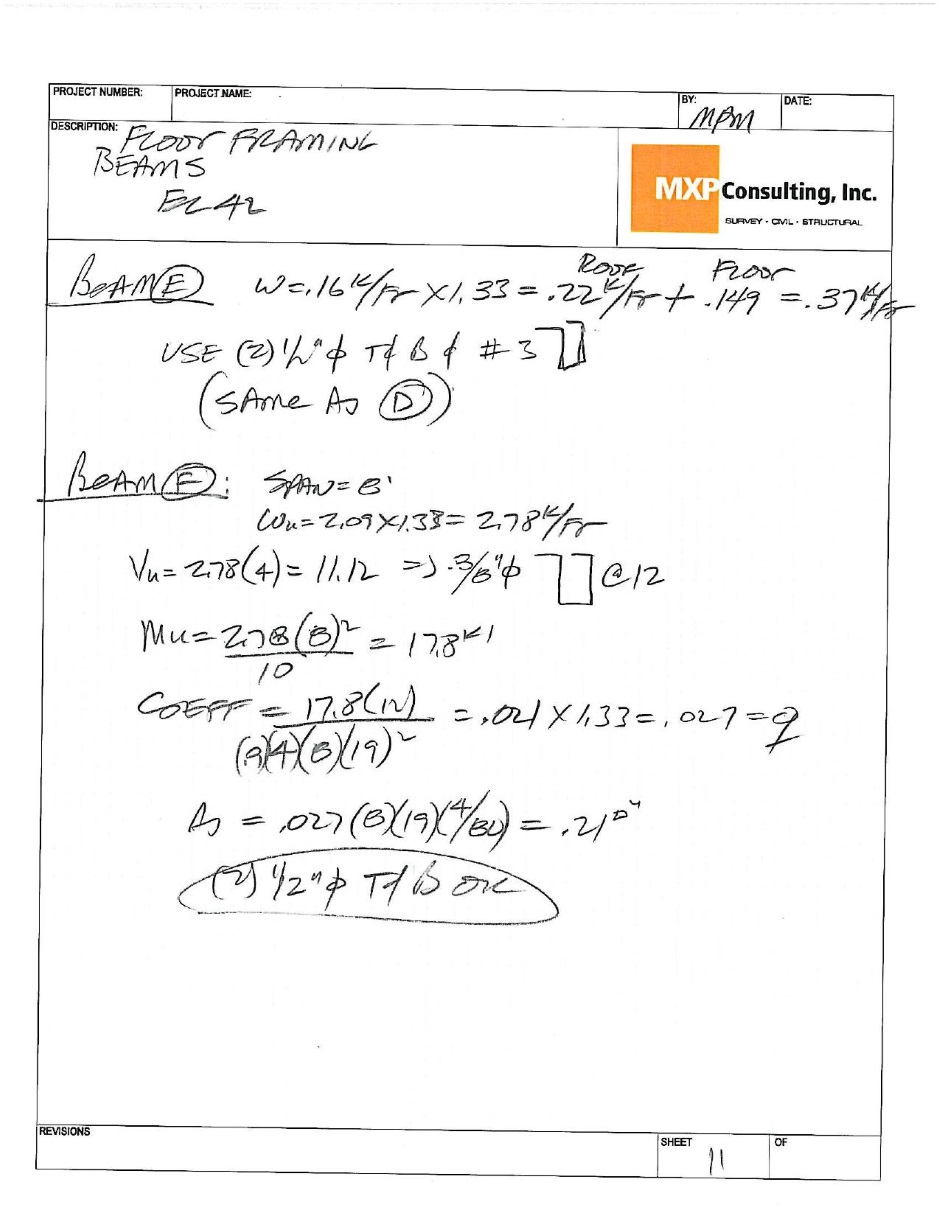 PROJECT NUMBER: PROJECT NAME: BY: MPM DATE:
DESCRIPTION: FLOOR FRAMING
BEAMS
EL 42
MXP Consulting, Inc.
SURVEY - CIVIL - STRUCTURAL
ROOF FLOOR
BEAM (E) W=.16 K/FT X 1.33 = .22 K/FT + .149 = .37 K/FT
USE (2) 1/2"φ T & B & #3
(SAME AS (D))
BEAM (F): SPAN = 8'
Wu = 2.09 X 1.33 = 2.78 K/FT
Vu = 2.78(4) = 11.12 => 3/8"φ @ 12
Mu = 2.78(8)² / 10 = 17.8 K'
COEFF = 17.8(12) / (.9)(4)(8)(19)² = .021 X 1.33 = .027 = q
As = .027(8)(19)(4/60) = .21 □"
(2) 1/2"φ T & B OK
REVISIONS
SHEET 11 OF